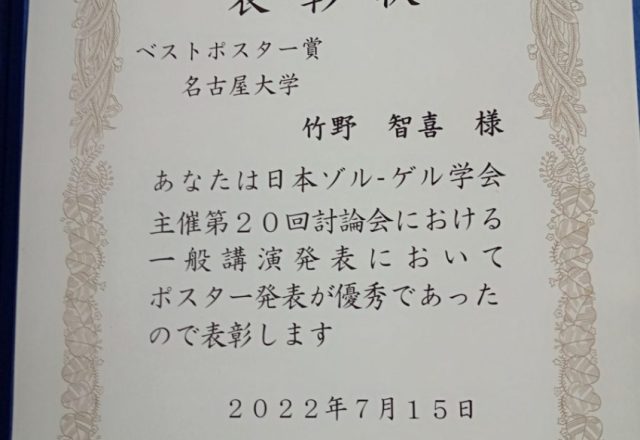 表彰状
ベストポスター賞
名古屋大学
竹野 智喜 様
あなたは日本ゾル-ゲル学会
主催第２０回討論会における
一般講演発表において
ポスター発表が優秀であった
ので表彰します
２０２２年７月１５日